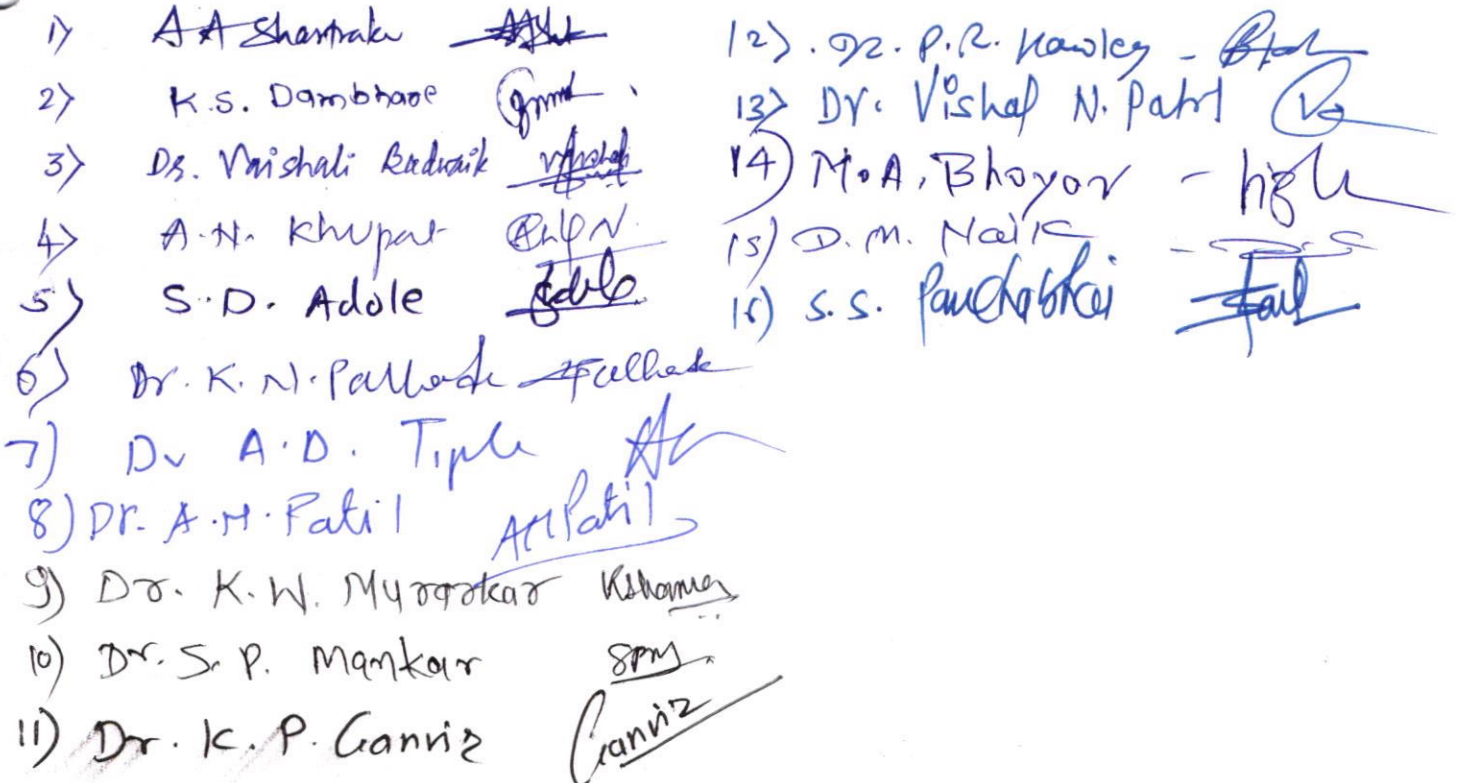 1) A A Shantraku
2) K.S. Dambhare
3) Dr. Vaishali Badwaik
4) A.N. Khupat
5) S.D. Adole Adole
6) Dr. K. N. Palhade Palhade
7) Dr A.D. Tiple
8) Dr. A.M. Patil AMPatil
9) Dr. K.W. Murarkar Kshama
10) Dr. S. P. Mankar SPM
11) Dr. K. P. Ganviz Ganviz
12). Dr. P.R. Hawley -
13) Dr. Vishal N. Patil
14) M.A. Bhoyar -
15) D. M. Naik -
16) S. S. Panchabhai